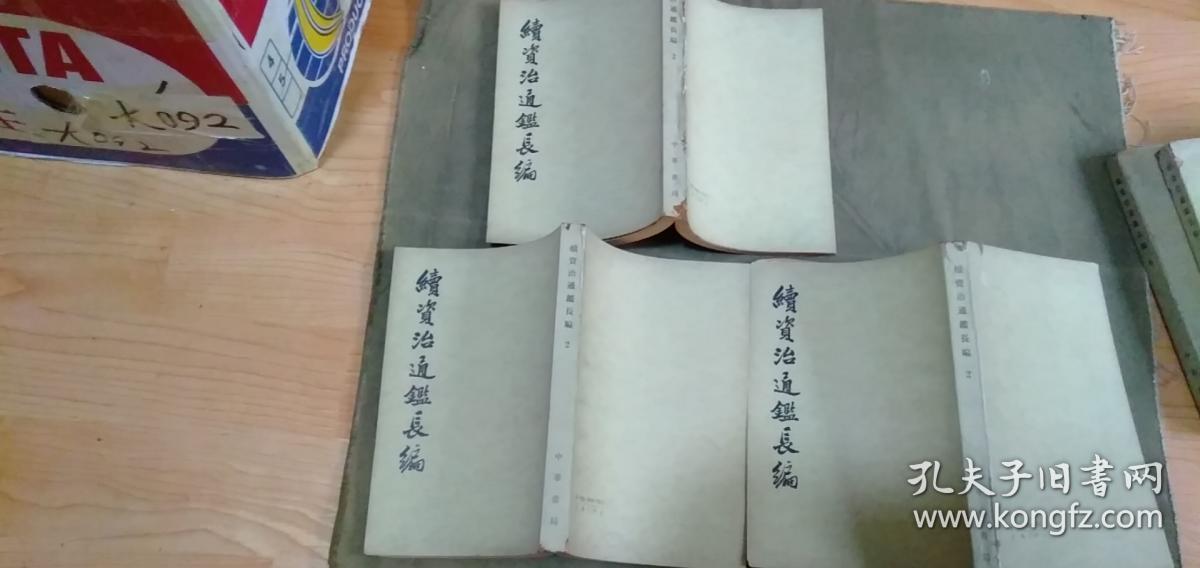 TA
PRODUC
4
5
大092
大092
續資治通鑑長編
資治通鑑長編 2
中華書局
續資治通鑑長編
續資治通鑑長編 2
中華書局
續資治通鑑長編
續資治通鑑長編 2
孔夫子旧书网
www.kongfz.com